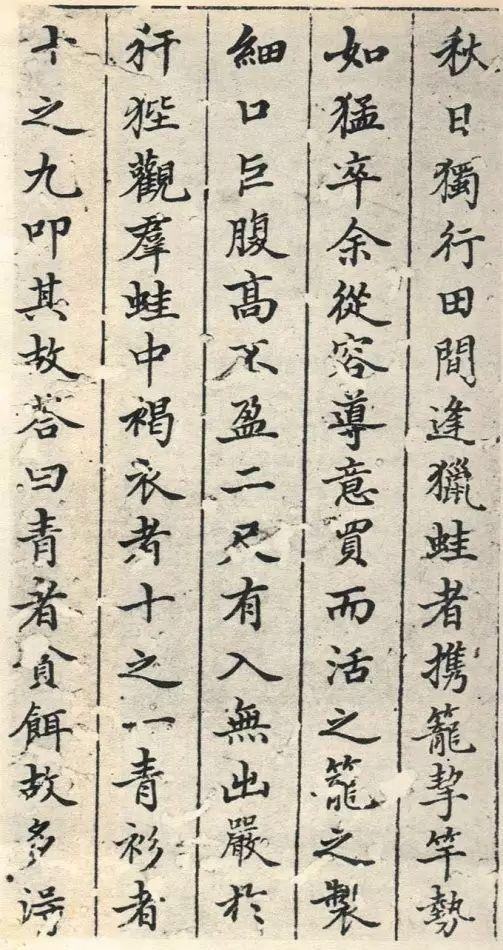 秋日獨行田間逢獵蛙者携籠挈竿勢
如猛卒余從容導意買而活之籠之製
細口巨腹高不盈二尺有入無出嚴於
犴狴觀羣蛙中褐衣者十之一青衫者
十之九叩其故答曰青者貪餌故多得